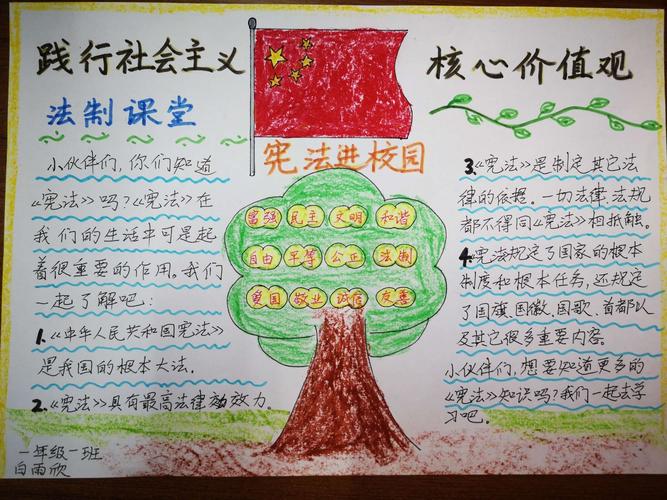 践行社会主义
核心价值观
法制课堂
宪法进校园
小伙伴们，你们知道
《宪法》吗？《宪法》在
我们的生活中可是起
着很重要的作用。我们
一起了解吧：
1.《中华人民共和国宪法》
是我国的根本大法.
2.《宪法》具有最高法律效力.
富强 民主 文明 和谐
自由 平等 公正 法制
爱国 敬业 诚信 友善
3.《宪法》是制定其它法
律的依据。一切法律、法规
都不得同《宪法》相抵触。
4.宪法规定了国家的根本
制度和根本任务，还规定
了国旗、国徽、国歌、首都以
及其它很多重要内容。
小伙伴们，想要知道更多的
《宪法》知识吗？我们一起去学
习吧。
一年级一班
白雨欣